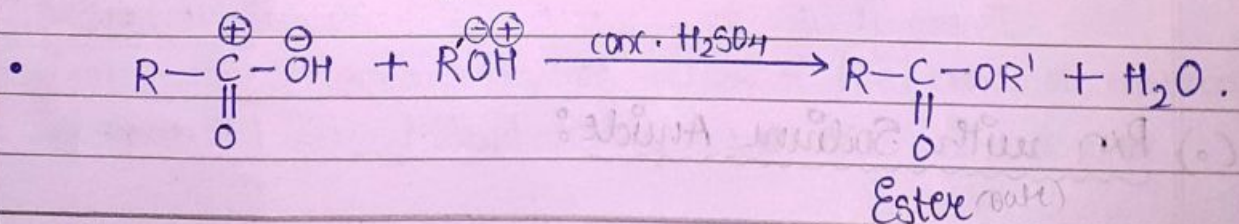 • R–C–OH + R'OH —conc. H₂SO₄→ R–C–OR' + H₂O.
⊕ ⊖ ⊖⊕
|| ||
O O
Ester (oate)